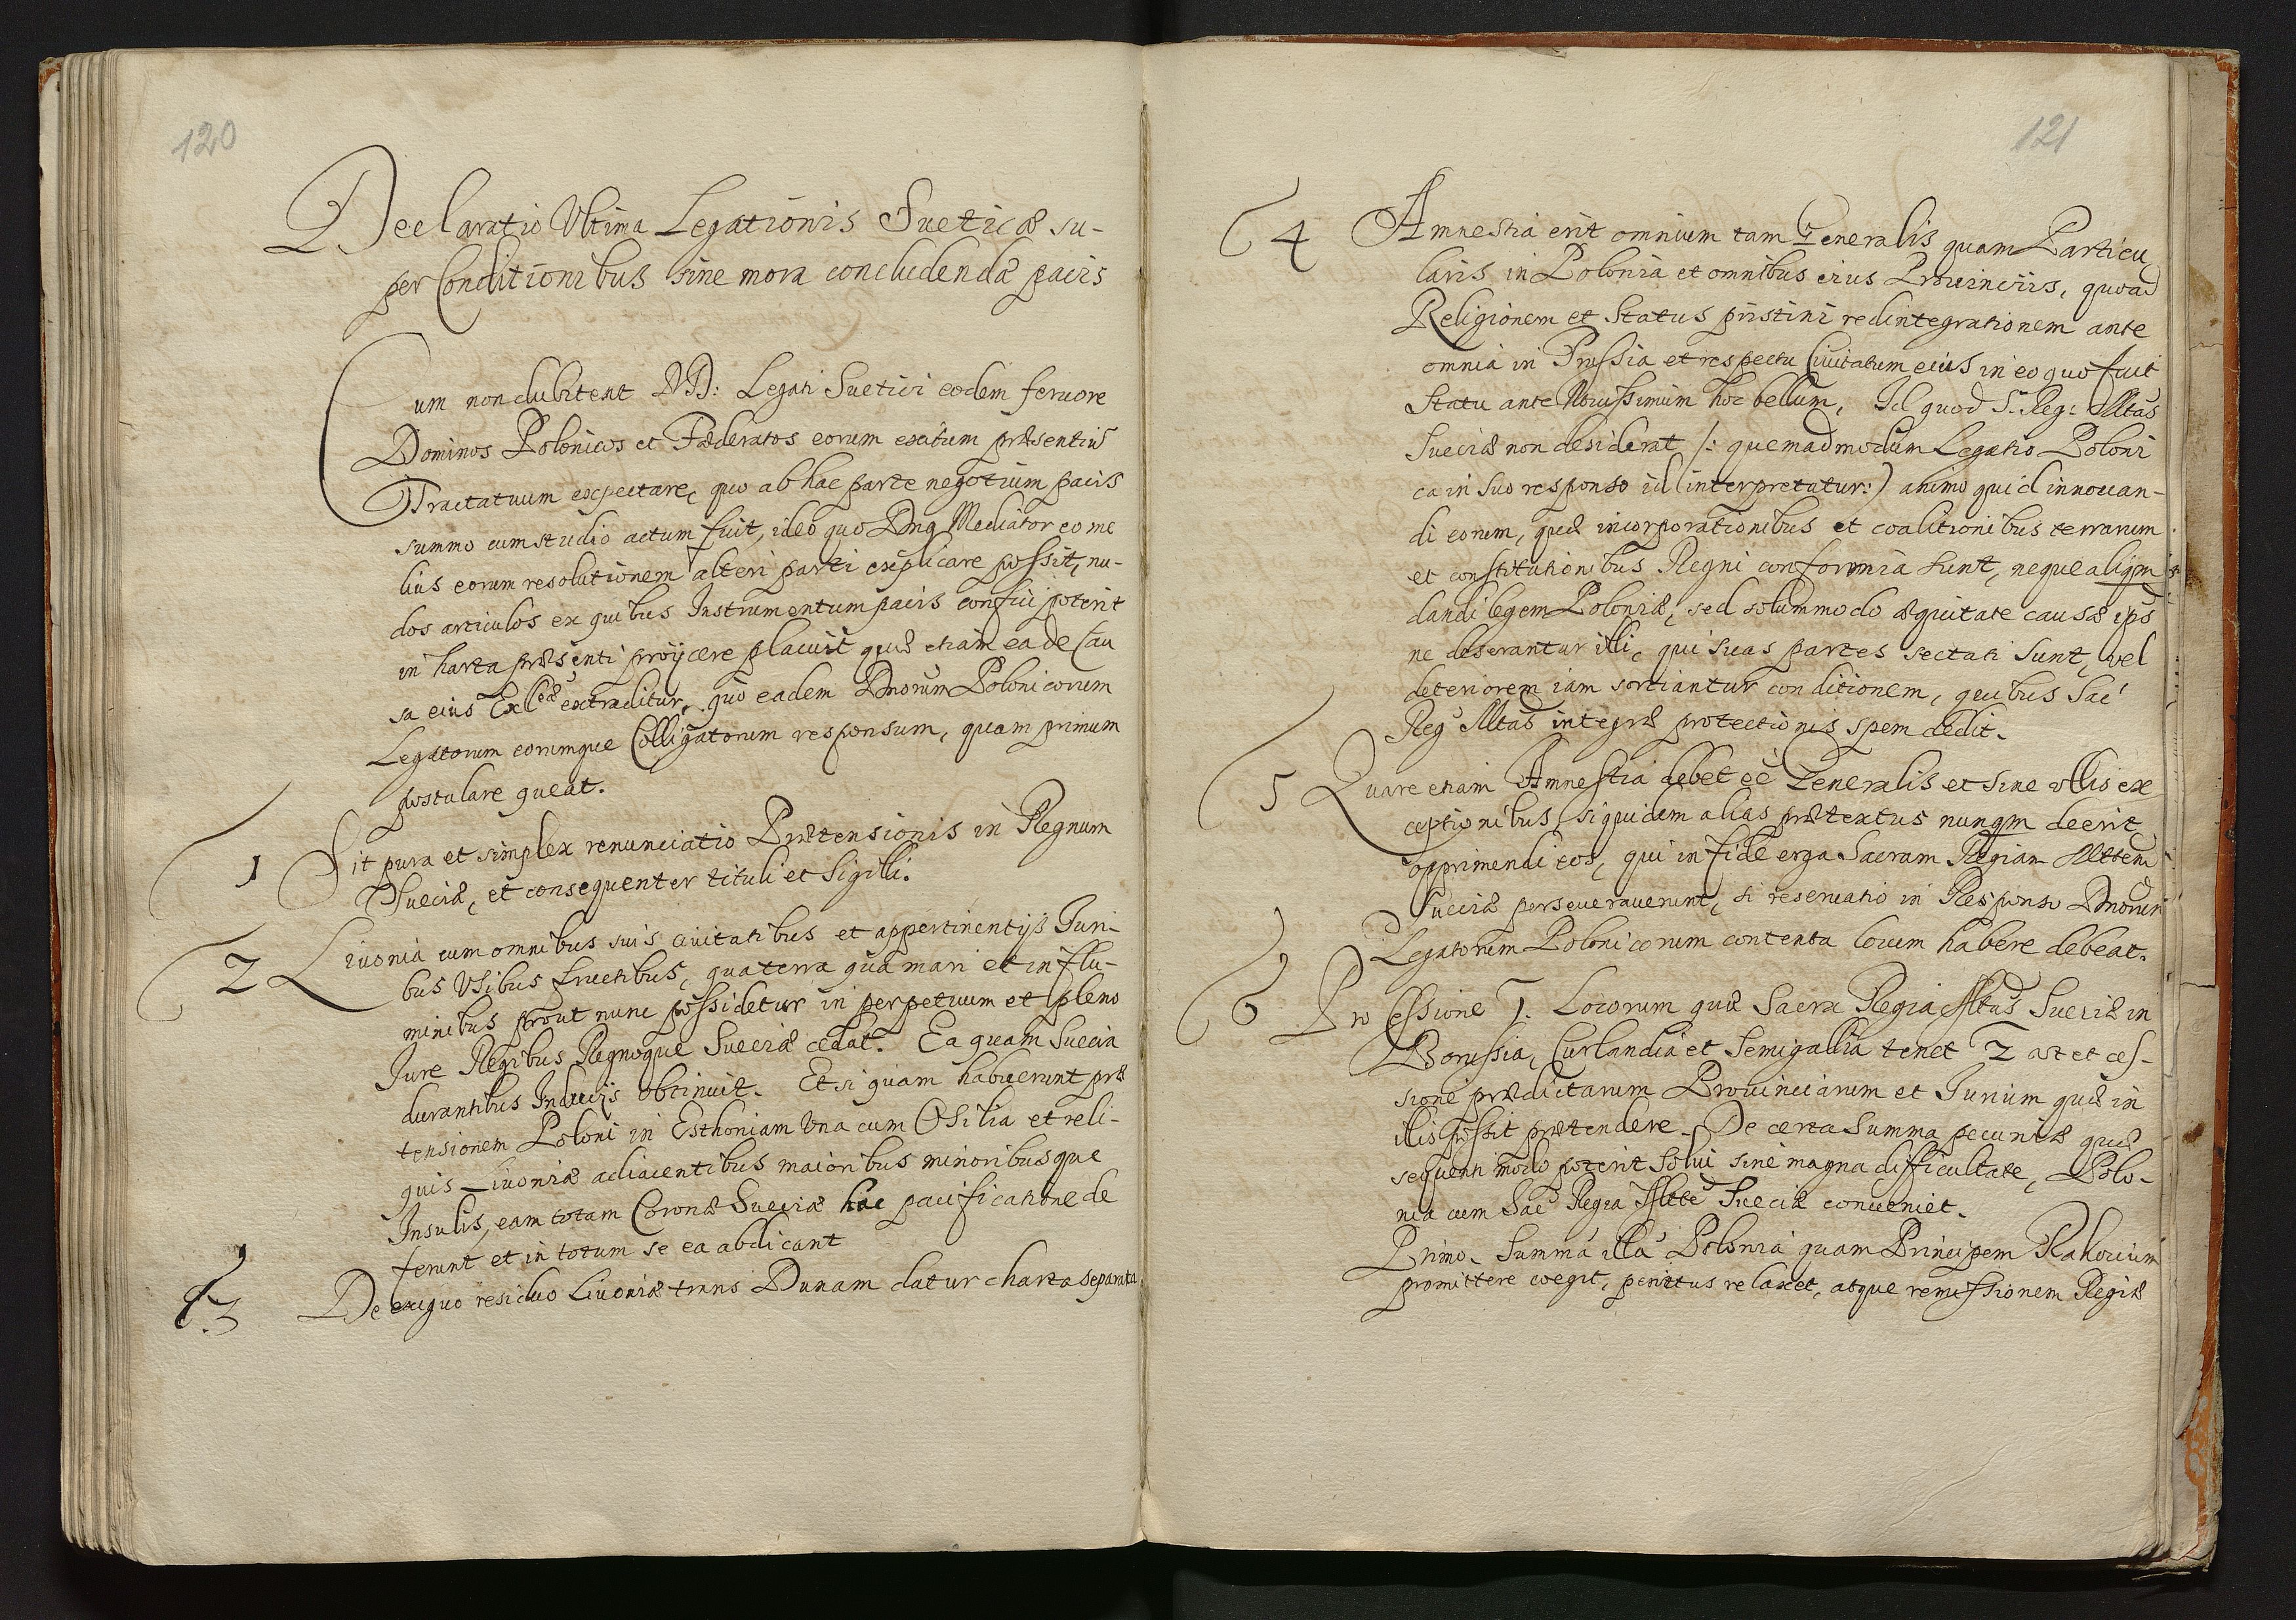 120
Declaratio Ultima Legationis Sueticæ su-
per Conditionibus sine mora concludendæ pacis
Cum non dubitent DD: Legati Suetici eodem feruore
Dominos Polonicos et Fæderatos eorum exitum præsentiũ
Tractatuum expectare, quo ab hac parte negotium pacis
summo cum studio actum fuit, ideo quo Dnq Mediator eo me
lius eorum resolutionem alteri parti explicare possit, nu-
dos articulos ex quibus Instrumentum pacis confici poterit
in harta præsenti proijcere placuit quæ etiam ea de Cau
sa eius Exlĕæ extraditur, quo eadem Dnorum Polonicorum
Legatorum eorumque Colligatorum responsum, quam primum
postulare queat.
1 Sit pura et simplex renunciatio Prætensionis in Regnum
Sueciæ, et consequenter tituli et Sigilli.
2 Liuonia cum omnibus suis ciuitatibus et appertinentijs Juri-
bus Usibus fructibus, qua terra qua mari et in flu-
minibus prout nunc possidetur in perpetuum et pleno
Jure Regibus Regnoque Sueciæ cedat. Ea quam Suecia
durantibus Inducijs obtinuit. Et si quam habuerunt præ
tensionem Poloni in Esthoniam Una cum Osilia et reli-
quis Liuoniæ adiacentibus maioribus minoribusque
Insulis, eam totam Coronæ Sueciæ hac pacificatione de
ferunt et in totum se ea abdicant
3 De exiguo residuo Liuoniæ trans Dunam datur charta separata
121
4 Amnestia erit omnium tam Generalis quam Particu
laris in Polonia et omnibus eius Prouincijs, quoad
Religionem et Status pristini redintegrationem ante
omnia in Prussia et respectu Ciuitatum eius in eo quo fuit
Statu ante Nouissimum hoc bellum, Id quod S. Reg: Mtas
Sueciæ non desiderat /: quemadmodum Legatio Poloni
ca in suo responso id interpretatur:) animo quid innouan-
di eorum, quæ incorporationibus et coalitionibus terrarum
et constitutionibus Regni conformia sunt, neque aliqm
dandi legem Poloniæ, sed solummodo æquitate causæ ips
ne deserantur illi, qui suas partes sectati sunt, vel
deteriorem iam sortiantur conditionem, quibus Sac
Reg Mtas integræ protectionis spem dedit.
5 Quare etiam Amnestia debet eẽ Generalis et sine vllis ex
ceptionibus, siquidem alias prætextus nunqm deerit
opprimendi eos, qui in fide erga Sacram Regiam Mttem
Sueciæ perseuerauerunt, si reseruatio in Responso Dnorum
Legatorum Polonicorum contenta locum habere debeat.
6 Pro Cessione 7. Locorum quæ Sacra Regia Mtas Sueciæ in
Borussia, Curlandia et Semigallia tenet 2 ast et ces-
sione prædictarum Prouinciarum et Jurium quæ in
illis possit prætendere. De certa Summa pecuniæ quæ
sequenti modo poterit Solui sine magna difficultate, Polo-
nia cum Sac Regia Mtte Sueciæ conueniet.
Primo. Summa illa Polonia quam Principem Rahocium
promittere coegit, penitus relaxet, atque remissionem Regiæ